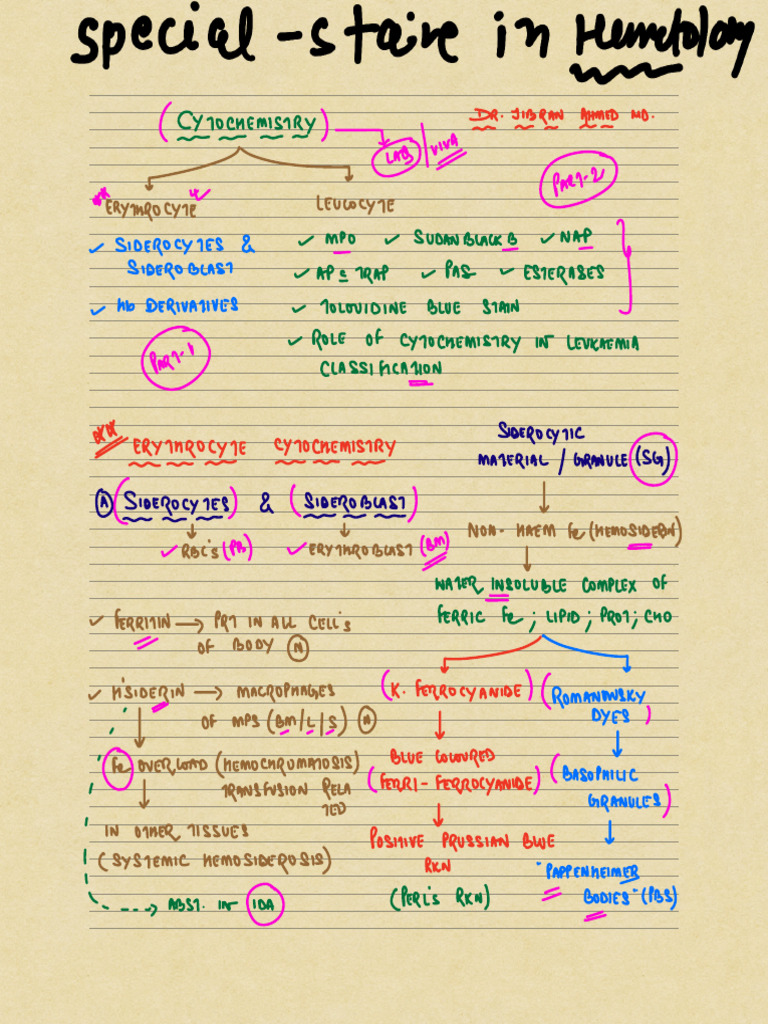 special-stain in Hemetology
(CYTOCHEMISTRY)
DR. JIBRAN AHMED MD.
LAB / VIVA
PART-2
ERYTHROCYTE
LEUCOCYTE
✓ SIDEROCYTES &
SIDEROBLAST
✓ Hb DERIVATIVES
PART-1
✓ MPO ✓ SUDAN BLACK B ✓ NAP
✓ AP c TRAP ✓ PAS ✓ ESTERASES
✓ TOLOUIDINE BLUE STAIN
✓ ROLE OF CYTOCHEMISTRY IN LEUKAEMIA
CLASSIFICATION
ERYTHROCYTE CYTOCHEMISTRY
(A) (SIDEROCYTES) & (SIDEROBLAST)
✓ RBC's (PB) ✓ ERYTHROBLAST (BM)
✓ FERRITIN → PRT IN ALL CELL'S
OF BODY (N)
✓ H'SIDERIN → MACROPHAGES
OF MPS (BM/L/S) (N)
Fe OVERLOAD (HEMOCHROMATOSIS)
TRANSFUSION RELA
TED
IN OTHER TISSUES
(SYSTEMIC HEMOSIDEROSIS)
→ ABST. IN IDA
SIDEROCYTIC
MATERIAL / GRANULE (SG)
NON-HAEM Fe (HEMOSIDERIN)
WATER INSOLUBLE COMPLEX OF
FERRIC Fe; LIPID; PROT; CHO
(K. FERROCYANIDE)
BLUE COLOURED
(FERRI-FERROCYANIDE)
POSITIVE PRUSSIAN BLUE
RXN
(PERL'S RXN)
(ROMANOWSKY
DYES)
(BASOPHILIC
GRANULES)
"PAPPENHEIMER
BODIES" (PBS)